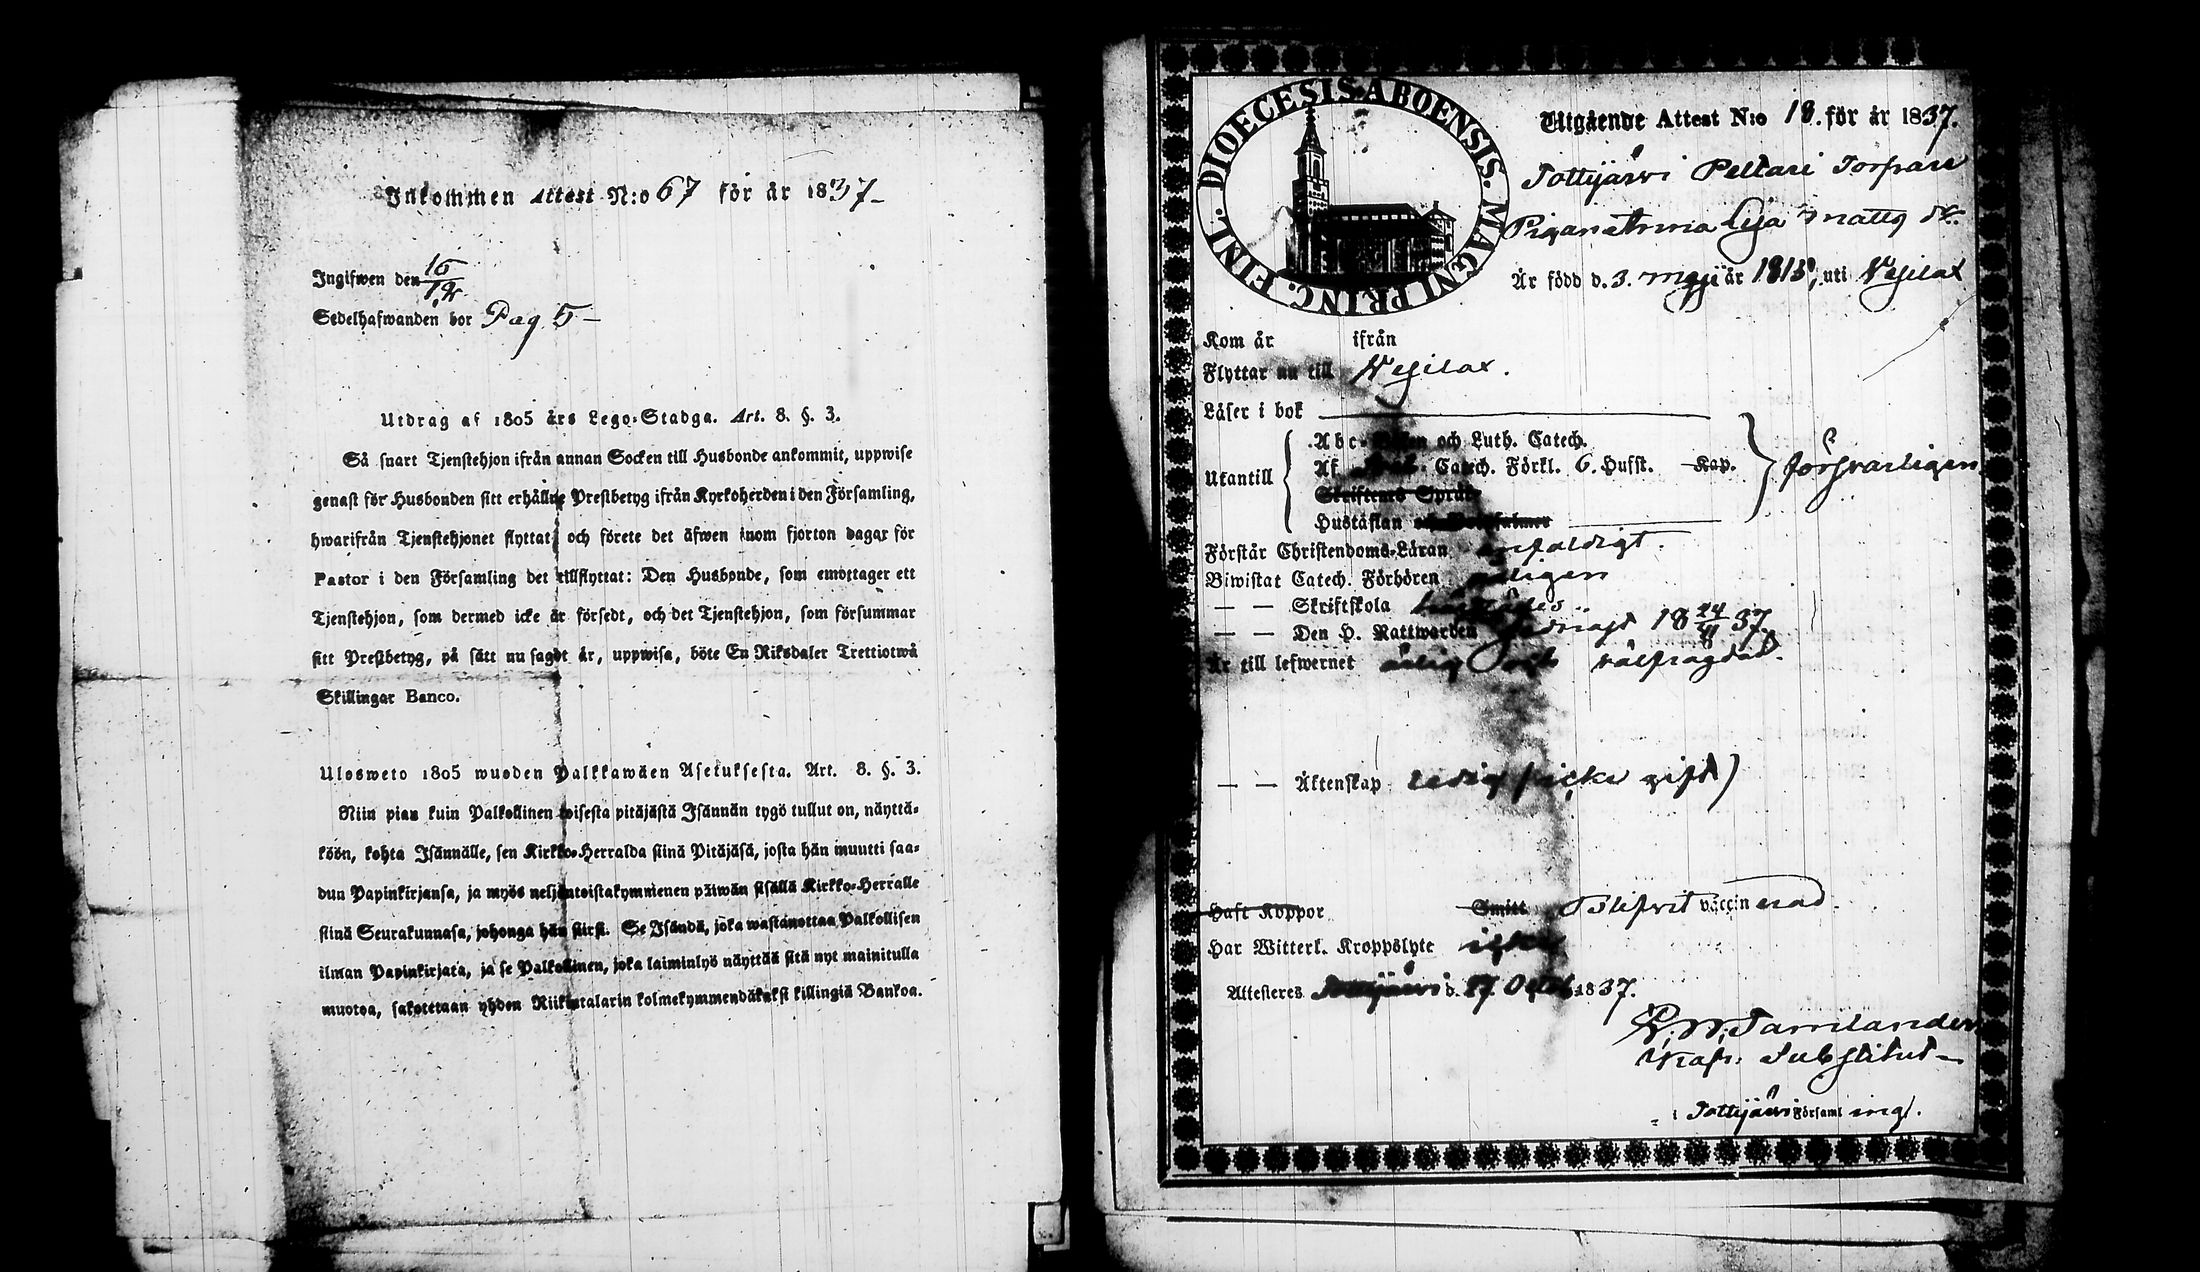 Inkommen Attest N:o 67 för år 1837
Ingifwen den 15/12
Sedelhafwanden bor Pag. 5
Utdrag af 1805 års Lego-Stadga. Art. 8. §. 3.
Så snart Tjenstehjon ifrån annan Socken till Husbonde ankommit, uppwise
genast för Husbonden sitt erhållne Prestbetyg ifrån Kyrkoherden i den Församling,
hwarifrån Tjenstehjonet flyttat; och förete det äfwen inom fjorton dagar för
Pastor i den Församling det tillflyttat: Den Husbonde, som emottager ett
Tjenstehjon, som dermed icke är försedt, och det Tjenstehjon, som försummar
sitt Prestbetyg, på sätt nu sagdt är, uppwisa, böte En Riksdaler Trettiotwå
Skillingar Banco.
Ulosweto 1805 wuoden Palkkawäen Asetuksesta. Art. 8. §. 3.
Niin pian kuin Palkollinen toisesta pitäjästä Isännän tygö tullut on, näyttä-
köön, kohta Isännälle, sen Kirkko-Herralda siinä Pitäjäsä, josta hän muutti saa-
dun Papinkirjansa, ja myös neljäntoistakymmenen päiwän sisällä Kirkko-Herralle
siinä Seurakunnasa, johonga hän siirsi. Se Isändä, joka wastanottaa Palkollisen
ilman Papinkirjata, ja se Palkollinen, joka laiminlyö näyttää sitä nyt mainitulla
muotoa, sakotetaan yhden Riikintalarin kolmekymmendäkaksi killingiä Bankoa.
DIOECESIS ABOENSIS. MAGNI PRINC. FINL.
Utgående Attest N:o 18. för år 1837.
Tottijärvi Peltari Torpare
Pigan Anna Lisa Matts dr.
Är född d. 3. Maji år 1815, uti Wesilax
Kom år ifrån
Flyttar nu till Wesilax.
Läser i bok
Abc-Boken och Luth. Catech.
Utantill Af Catech. Förkl. 6. Hufst. Kap. försvarligen
Skriftenes Språk
Hustaflan och
Förstår Christendoms-Läran enfaldigt.
Biwistat Catech. Förhören årligen
— — Skriftskola
— — Den H. Nattwarden 18 24/9 37.
Är till lefwernet ärlig och välfrägdad.
— — Äktenskap ledig (icke gift)
Haft Koppor Smitt Blifvit vaccinerad.
Har Witterl. Kroppslyte icke
Attesteres Tottijärvi d. 17. Octob. 1837.
Tamlander
Kapl. Substitut
i Tottijärvi Församling.